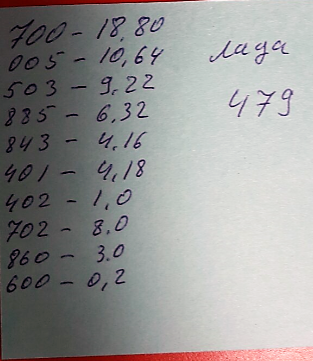 700 - 18,80
005 - 10,64
503 - 9,22
885 - 6,32
843 - 4,16
401 - 4,18
402 - 1,0
702 - 8.0
860 - 3.0
600 - 0,2
лада
479